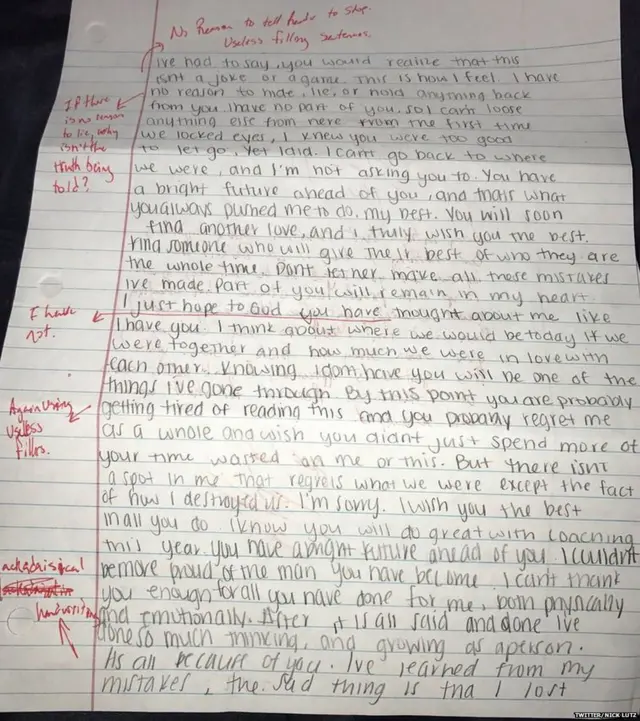 No Reason to tell reader to stop.
Useless filling sentences.
ive had to say, you would realize that this
isnt a joke or a game. This is how I feel. I have
no reason to hide, lie, or hold anything back
from you. I have no part of you, so I cant loose
anything else from here. From the first time
we locked eyes, I knew you were too good
to let go, yet I did. I cant go back to where
we were, and I'm not asking you to. You have
a bright future ahead of you, and thats what
you always pushed me to do, my best. You will soon
find another love, and I truly wish you the best.
find someone who will give the best of who they are
the whole time. Dont let her make all these mistakes
ive made. Part of you will remain in my heart
I just hope to God you have thought about me like
I have you. I think about where we would be today if we
were together and how much we were in love with
each other. Knowing I dont have you will be one of the
things I've gone through. By this point you are probably
getting tired of reading this and you probably regret me
as a whole and wish you didnt just spend more of
your time wasted on me or this. But there isnt
a spot in me that regrets what we were except the fact
of how I destroyed us. I'm sorry. I wish you the best
in all you do. I know you will do great with coaching
this year. you have a bright future ahead of you. I couldn't
be more proud of the man you have become. I cant thank
you enough for all you have done for me, both physically
and emotionally. After it is all said and done ive
done so much thinking, and growing as a person.
Its all because of you. I've learned from my
mistakes, the sad thing is tha I lost
If there
is no reason
to lie, why
isn't the
truth being
told?
I have
not.
Again using
useless
fillers.
handwriting
TWITTER/NICK LUTZ